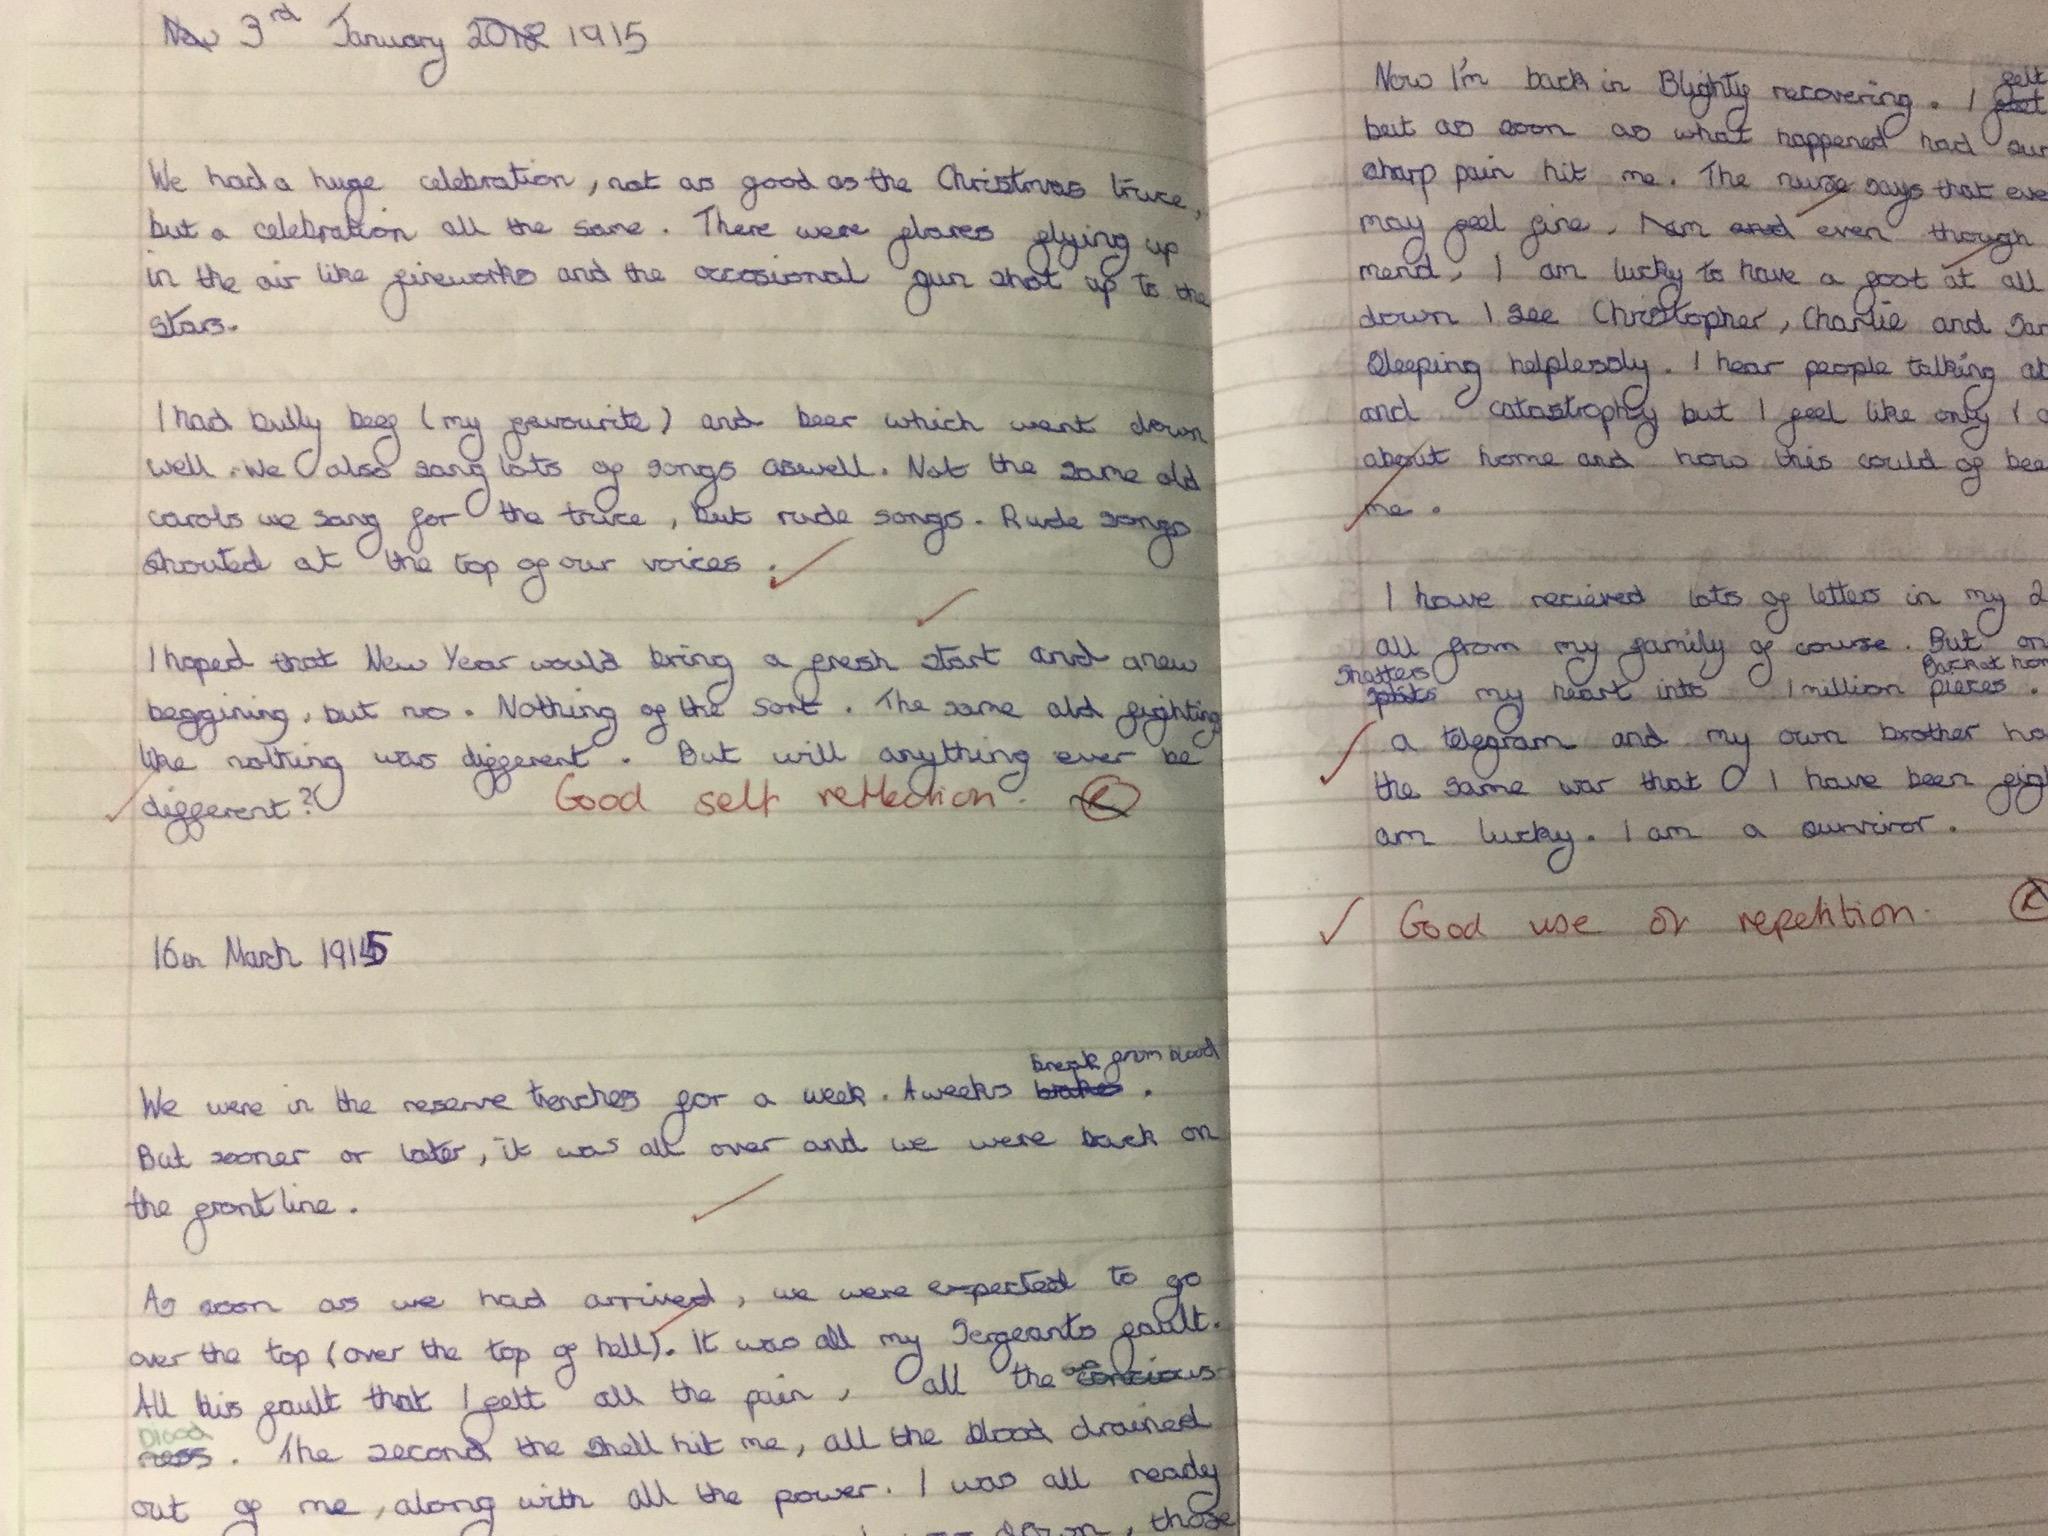 3rd January 1915
We had a huge celebration, not as good as the Christmas truce,
but a celebration all the same. There were flares flying up
in the air like fireworks and the occasional gun shot up to the
stars.
I had bully beef (my favourite) and beer which went down
well. We also sang lots of songs aswell. Not the same old
carols we sang for the truce, but rude songs. Rude songs
shouted at the top of our voices.
I hoped that New Year would bring a fresh start and a new
beggining, but no. Nothing of the sort. The same old fighting
like nothing was different. But will anything ever be
different?
Good self reflection.
16th March 1915
break from blood
We were in the reserve trenches for a week. A weeks brakes.
But sooner or later, it was all over and we were back on
the front line.
As soon as we had arrived, we were expected to go
over the top (over the top of hell). It was all my Sergeants fault.
All his fault that I felt all the pain, all the concious-
blood
ness. The second the shell hit me, all the blood drained
out of me, along with all the power. I was all ready
down, those
Now I'm back in Blighty recovering. I felt
but as soon as what happened had
sharp pain hit me. The nurse says that
may feel fine, and even though
mend, I am lucky to have a foot at all
down I see Christopher, Charlie and
Sleeping helplessly. I hear people talking
and catastrophy but I feel like only I
about home and how this could of
me.
I have recieved lots of letters in my 2
all from my family of course. But
Shatters Back at
my heart into 1 million pieces.
a telegram and my own brother
the same war that I have been
am lucky. I am a survivor.
Good use of repetition.